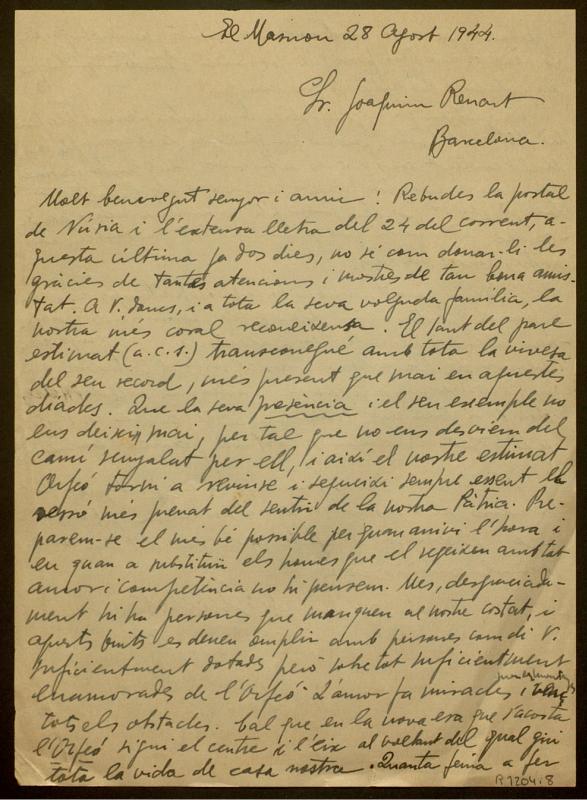 El Masnou 28 Agost 1944.
Sr. Joaquim Renart
Barcelona.
Molt benvolgut senyor i amic! Rebudes la postal
de Núria i l'extensa lletra del 24 del corrent, a-
questa última fa dos dies, no sé com donar-li les
gràcies de tantes atencions i mostres de tan bona amis-
tat. A V. doncs, i a tota la seva volguda família, la
nostra més coral reconeixensa. El Sant del pare
estimat (a.c.s.) transcorregué amb tota la vivesa
del seu record, més present que mai en aquestes
diades. Que la seva presència i el seu exemple no
ens deixin mai, per tal que no ens desviem del
camí senyalat per ell, i així el nostre estimat
Orfeó torni a reviure i segueixi sempre essent el
verb més prenat del sentir de la nostra Pàtria. Pre-
parem-se el més bé possible per quan arrivi l'hora i
en quan a substituir els homes que el regeixen amb tat
amor i competència no hi pensem. Mes, desgraciada-
ment hi ha persones que manquen al nostre costat, i
aquests buits es deuen omplir amb persones com di V.
suficientment dotades però sobretot suficientment
enamorades de l'Orfeó. L'amor fa miracles i
tots els obstacles. Cal que en la nova era que s'acosta
l'Orfeó sigui el centre i l'eix al voltant del qual giri
tota la vida de casa nostra. Quanta feina a fer
R.1204.8